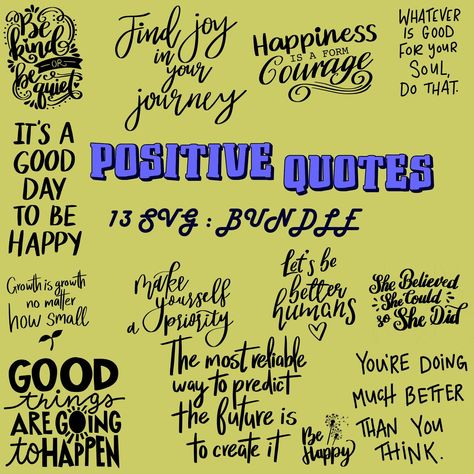 Be
kind
OR
be
quiet
Find joy
in your
journey
Happiness
IS A FORM
Courage
WHATEVER
IS GOOD
FOR YOUR
SOUL,
DO THAT.
IT'S A
GOOD
DAY
TO BE
HAPPY
POSITIVE QUOTES
13 SVG : BUNDLE
Growth is growth
no matter
how small
make
yourself
a priority
Let's be
better
humans
She Believed
She Could
so She Did
GOOD
things
ARE GOING
to HAPPEN
The most reliable
way to predict
the future is
to create it
Be
Happy
YOU'RE DOING
MUCH BETTER
THAN YOU
THINK.